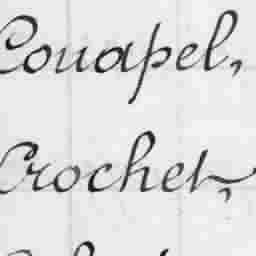 Couapel,
Crochet,